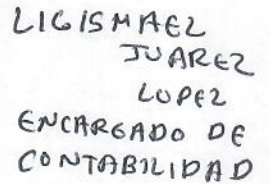 LIGISMAEL
JUAREZ
LOPEZ
ENCARGADO DE
CONTABILIDAD